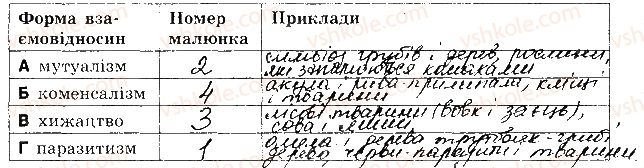 Форма вза-
ємовідносин
Номер
малюнка
Приклади
А мутуалізм
2
симбіоз грибів і дерев, рослини,
які запилюються комахами
Б коменсалізм
4
акула і риба прилипала, кліщі
і тварини
В хижацтво
3
лісові тварини (вовк і заєць),
сова і миші
Г паразитизм
1
омела і дерева трутовик-гриб і
дерево черви-паразити і тварини